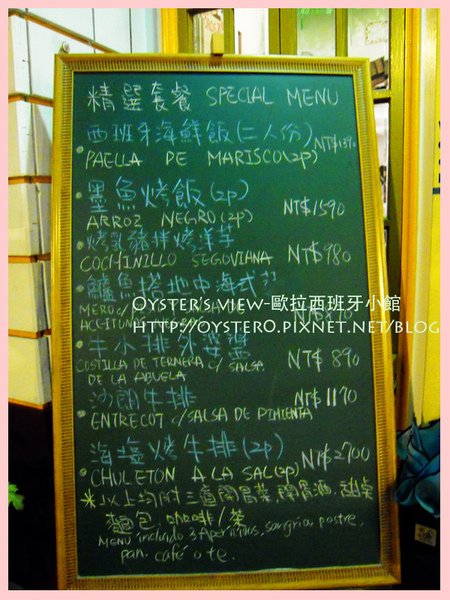 精選套餐 SPECIAL MENU
西班牙海鮮飯(二人份) NT$1390
PAELLA DE MARISCO(2P)
墨魚烤飯(2p)
ARROZ NEGRO(2P) NT$1590
烤乳豬拌烤洋芋
COCHINILLO SEGOVIANA NT$980
鱸魚搭地中海式
OYSTER'S VIEW-歐拉西班牙小館
MERO c/
ACEITUN
HTTP://OYSTER0.PIXNET.NET/BLOG
牛小排外婆醬
COSTILLA DE TERNERA c/ SALSA NT$ 890
DE LA ABUELA
沙朗牛排 NT$1170
ENTRECOT c/SALSA DE PIMIENTA
海鹽烤牛排(2p) NT$2700
CHULETON A LA SAL(2p)
※以上均附三道開胃菜,開胃酒,甜點
麵包,咖啡/茶
MENU incluido 3 Aperitivos, sangria, postre,
pan. café o te.